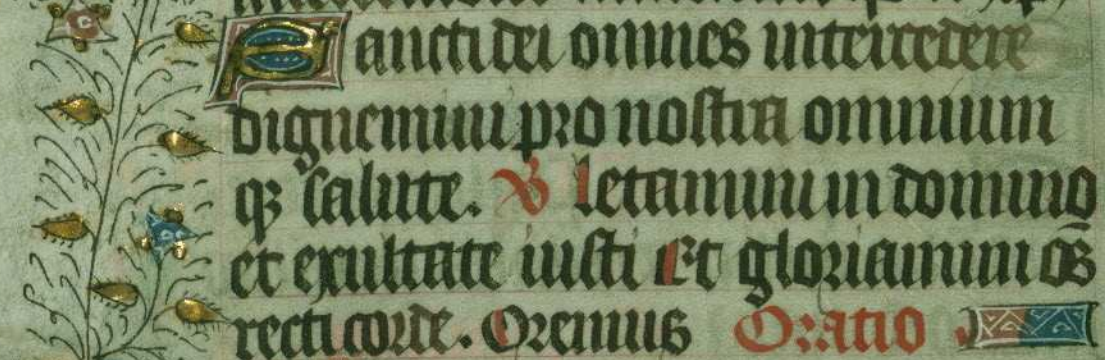 Sancti dei omnes intercedere
dignemini pro nostra omnium
qȝ salute. ℣ letamini in domino
et exultate iusti Et gloriamini oēs
recti corde. Oremus Oratio